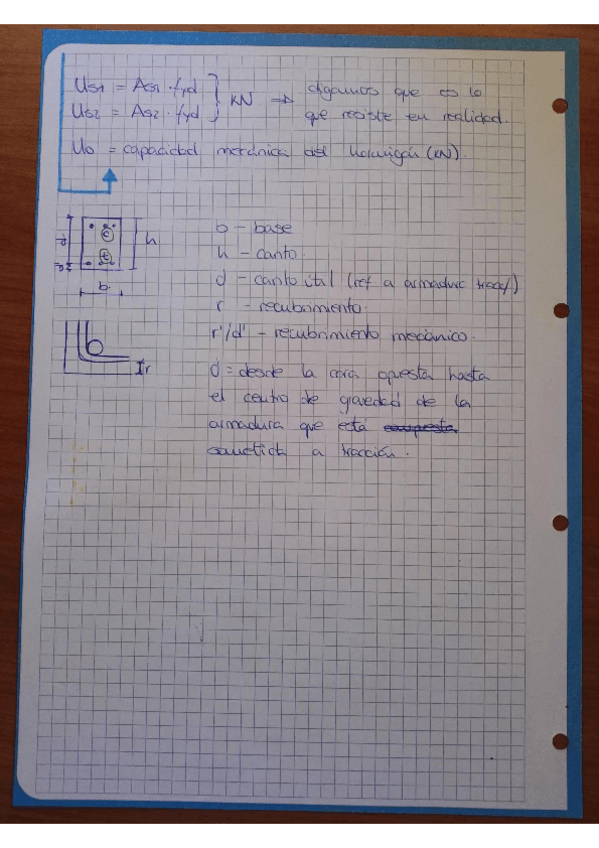 Us1 = As1 · fyd
Us2 = As2 · fyd
} KN → digamos que es lo
que resiste en realidad.
Uo = capacidad mecánica del hormigón (KN).
b – base
h – canto
d – canto útil (ref a armadura tracc/)
r – recubrimiento
r'/d' – recubrimiento mecánico.
d = desde la cara opuesta hasta
el centro de gravedad de la
armadura que está compuesta
sometida a tracción.
d
h
b
r